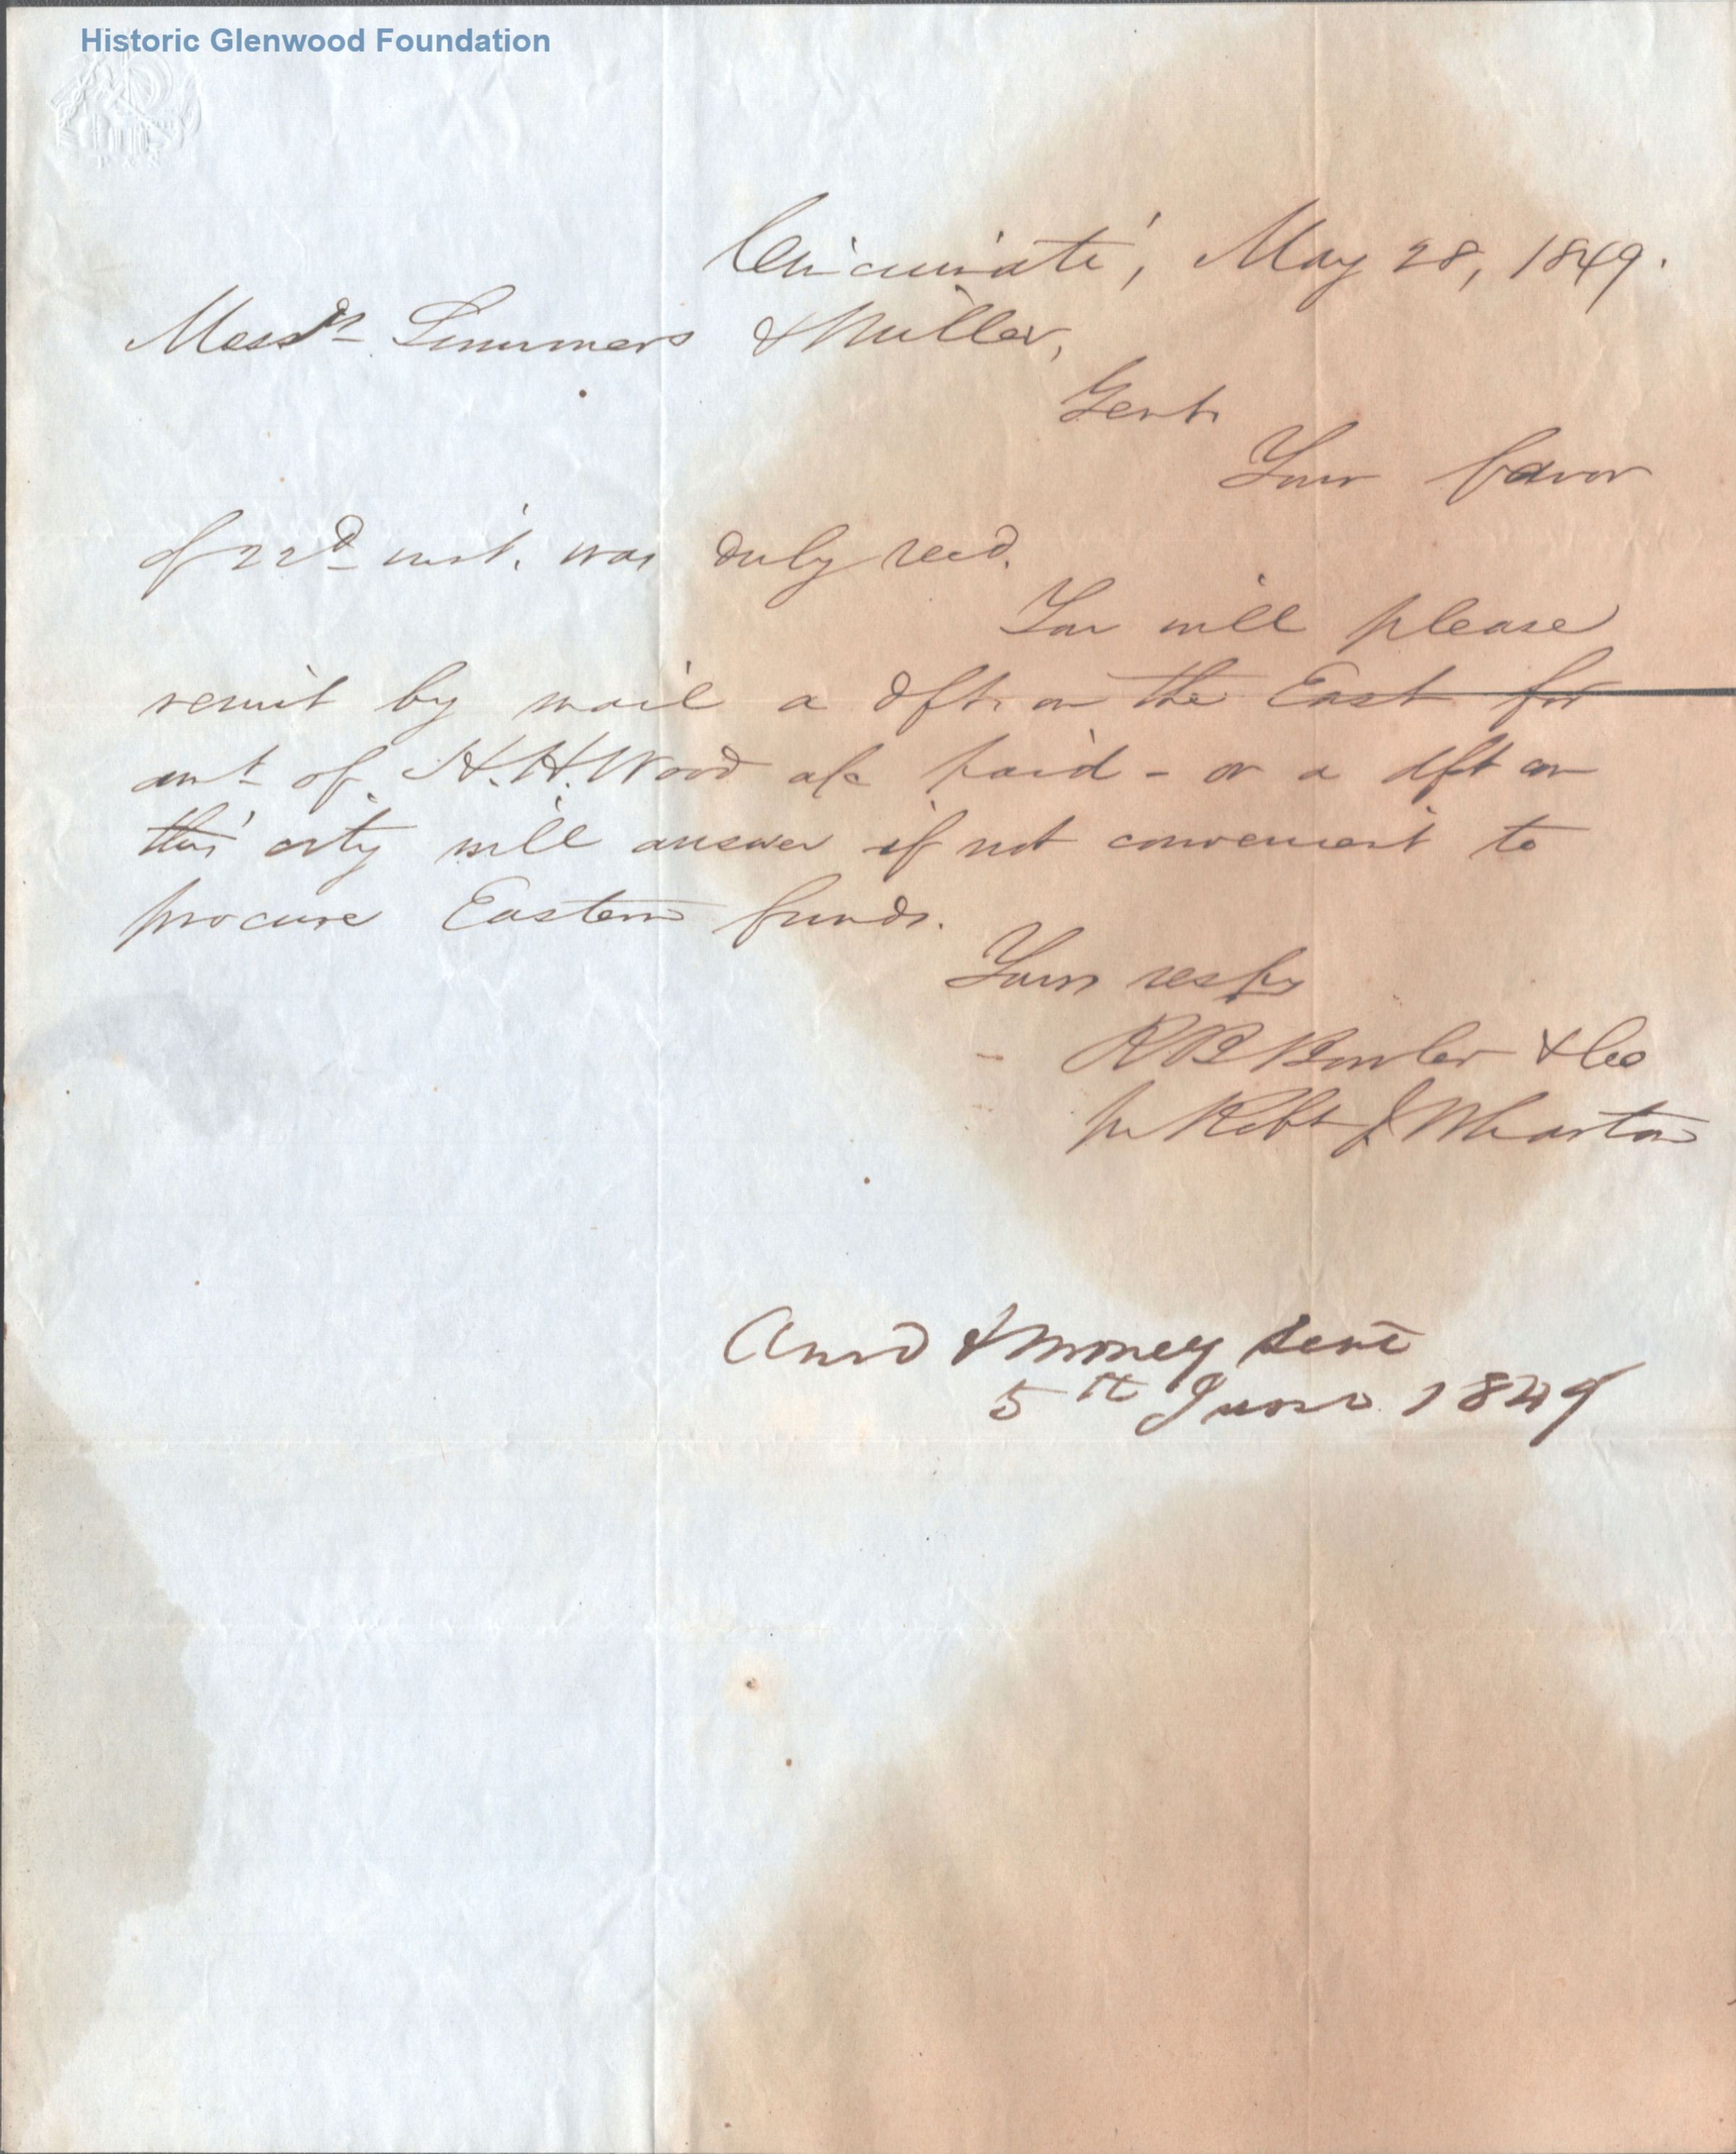 Historic Glenwood Foundation
Cincinnati, May 28, 1849.
Messrs Summers & Miller,
Gents
Your favor
of 22d inst. was duly recd.
You will please
remit by mail a dft. on the East for
amt of H. H. Wood a/c paid - or a dft on
this city will answer if not convenient to
procure Eastern funds.
Yours respy
R B Bowler & Co
pr Robt J Wharton
Ansd & money sent
5th June 1849